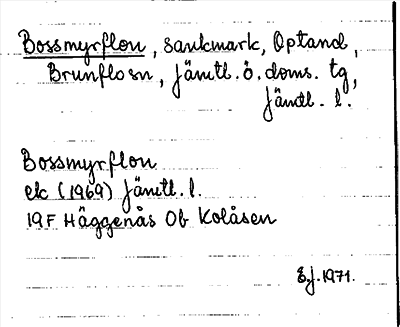 Bossmyrflon, sankmark, Optand,
Brunflo sn, Jämtl. ö. doms. tg,
Jämtl. l.
Bossmyrflon
ek (1969) Jämtl. l.
19F Häggenås Ob Kolåsen
Ej. 1971.